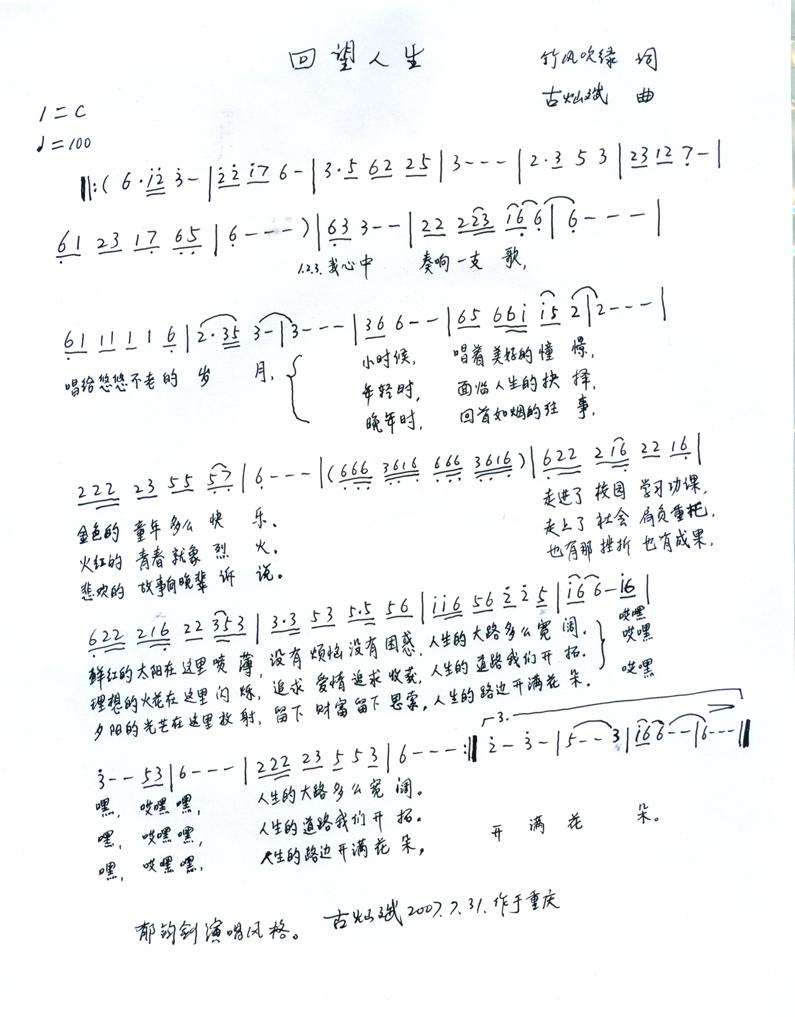 回望人生
竹风吹绿 词
古灿斌 曲
1=C
♩=100
‖:(6·i̇2̇ 3̇-|2̇2̇ i̇7 6-|3·5 62 25|3---|2·3 5 3|2312 7-|
61 23 17 65|6---)|63 3--|22 223 166|6---|
1.2.3.我心中 奏响一支 歌,
61 11 1 1 6|2·35 3-|3---|36 6--|65 66i i5 2|2---|
唱给悠悠不老的 岁 月, { 小时候, 唱着美好的憧 憬,
年轻时, 面临人生的抉 择,
晚年时, 回首如烟的往 事,
222 23 55 57|6---|(666 3616 666 3616)|622 216 22 16|
金色的 童年多么 快 乐. 走进了 校园 学习功课,
火红的 青春就象 烈 火. 走上了 社会 肩负重托,
悲欢的 故事向晚辈 诉 说. 也有那 挫折 也有成果,
622 216 22 353|3·3 53 5·5 56|ii6 56 2̇ 2̇ 5|i66-i6|
鲜红的太阳在这里喷 薄, 没有 烦恼没有困惑, 人生的大路多么宽 阔. 哎嘿
理想的火花在这里闪 烁, 追求 爱情追求 收获, 人生的道路我们开 拓. 哎嘿
夕阳的光芒在这里放 射, 留下 财富留下 思索, 人生的路边开满花 朵. 哎嘿
3̇--53|6---|222 23 5 53|6---:‖ 3. 2̇-3̇-|5--3|i66--|6---‖
嘿, 哎嘿嘿, 人生的大路多么宽 阔.
嘿, 哎嘿嘿, 人生的道路我们开 拓.
嘿, 哎嘿嘿, 人生的路边开满花 朵, 开 满 花 朵.
郁钧剑演唱风格. 古灿斌2007.7.31.作于重庆